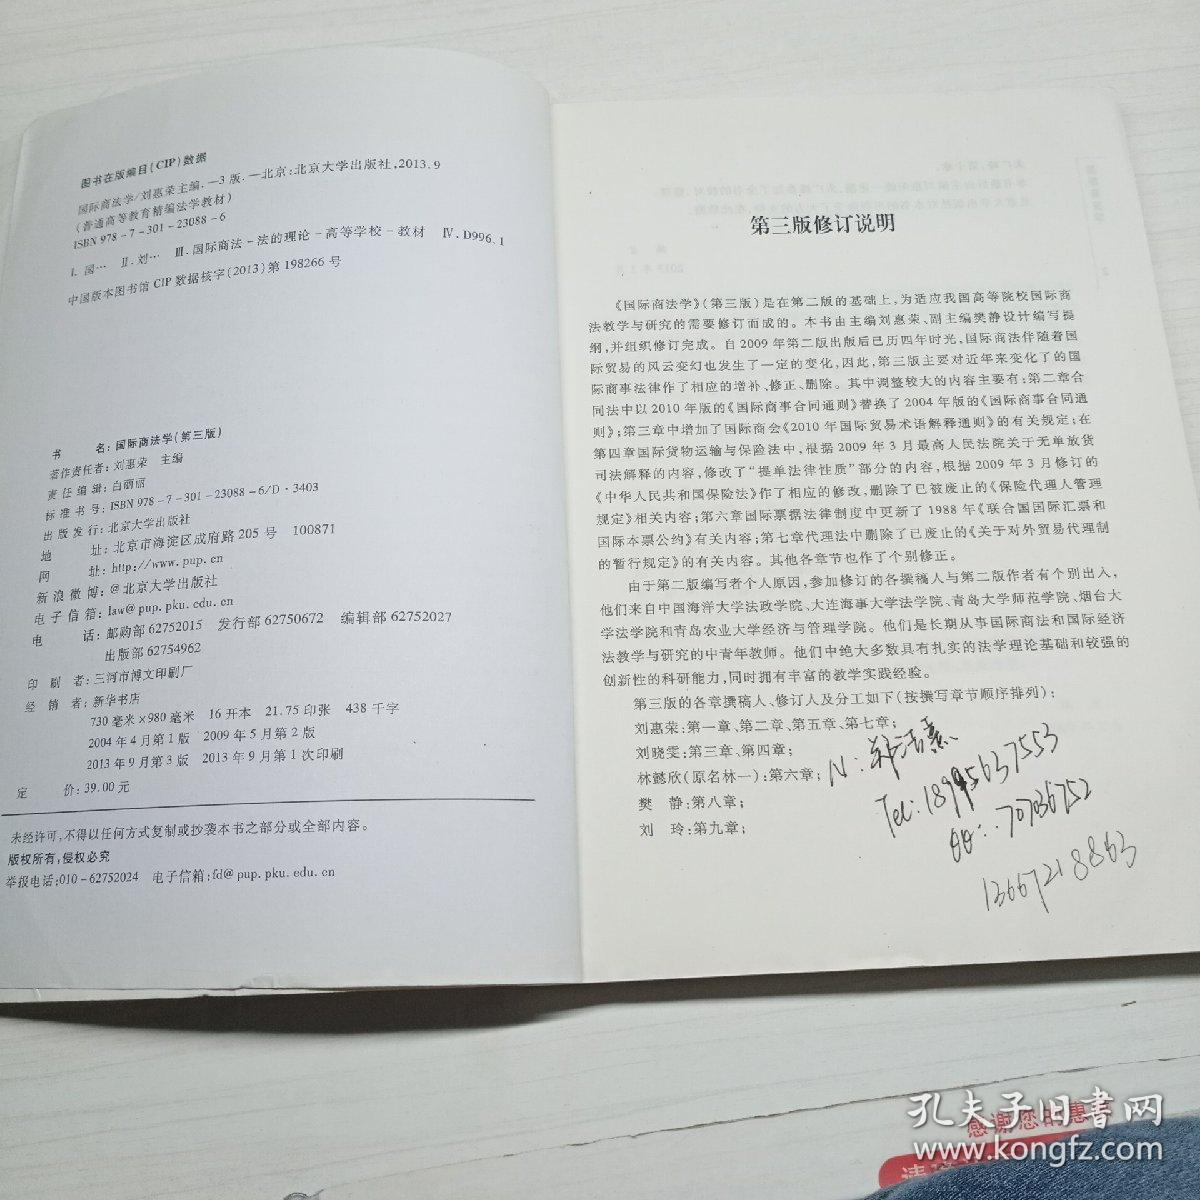 图书在版编目(CIP)数据
国际商法学/刘惠荣主编.—3版.—北京:北京大学出版社,2013.9
(普通高等教育精编法学教材)
ISBN 978-7-301-23088-6
Ⅰ.国… Ⅱ.刘… Ⅲ.国际商法-法的理论-高等学校-教材 Ⅳ.D996.1
中国版本图书馆CIP数据核字(2013)第198266号
书 名:国际商法学(第三版)
著作责任者:刘惠荣 主编
责任编辑:白丽丽
标准书号:ISBN 978-7-301-23088-6/D·3403
出版发行:北京大学出版社
地 址:北京市海淀区成府路205号 100871
网 址:http://www.pup.cn
新浪微博:@北京大学出版社
电子信箱:law@pup.pku.edu.cn
电 话:邮购部62752015 发行部62750672 编辑部62752027
出版部62754962
印刷者:三河市博文印刷厂
经销者:新华书店
730毫米×980毫米 16开本 21.75印张 438千字
2004年4月第1版 2009年5月第2版
2013年9月第3版 2013年9月第1次印刷
定 价:39.00元
未经许可,不得以任何方式复制或抄袭本书之部分或全部内容。
版权所有,侵权必究
举报电话:010-62752024 电子信箱:fd@pup.pku.edu.cn
第三版修订说明
《国际商法学》(第三版)是在第二版的基础上,为适应我国高等院校国际商
法教学与研究的需要修订而成的。本书由主编刘惠荣、副主编樊静设计编写提
纲,并组织修订完成。自2009年第二版出版后已历四年时光,国际商法伴随着国
际贸易的风云变幻也发生了一定的变化,因此,第三版主要对近年来变化了的国
际商事法律作了相应的增补、修正、删除。其中调整较大的内容主要有:第二章合
同法中以2010年版的《国际商事合同通则》替换了2004年版的《国际商事合同通
则》;第三章中增加了国际商会《2010年国际贸易术语解释通则》的有关规定;在
第四章国际货物运输与保险法中,根据2009年3月最高人民法院关于无单放货
司法解释的内容,修改了“提单法律性质”部分的内容,根据2009年3月修订的
《中华人民共和国保险法》作了相应的修改,删除了已被废止的《保险代理人管理
规定》相关内容;第六章国际票据法律制度中更新了1988年《联合国国际汇票和
国际本票公约》有关内容;第七章代理法中删除了已废止的《关于对外贸易代理制
的暂行规定》的有关内容。其他各章节也作了个别修正。
由于第二版编写者个人原因,参加修订的各撰稿人与第二版作者有个别出入,
他们来自中国海洋大学法政学院、大连海事大学法学院、青岛大学师范学院、烟台大
学法学院和青岛农业大学经济与管理学院。他们是长期从事国际商法和国际经济
法教学与研究的中青年教师。他们中绝大多数具有扎实的法学理论基础和较强的
创新性的科研能力,同时拥有丰富的教学实践经验。
第三版的各章撰稿人、修订人及分工如下(按撰写章节顺序排列):
刘惠荣:第一章、第二章、第五章、第七章;
刘晓雯:第三章、第四章;
林懿欣(原名林一):第六章;
樊 静:第八章;
刘 玲:第九章;
N:
Tel:18995637553
QQ:70736752
13667218863
感谢您的惠
孔夫子旧书网
www.kongfz.com